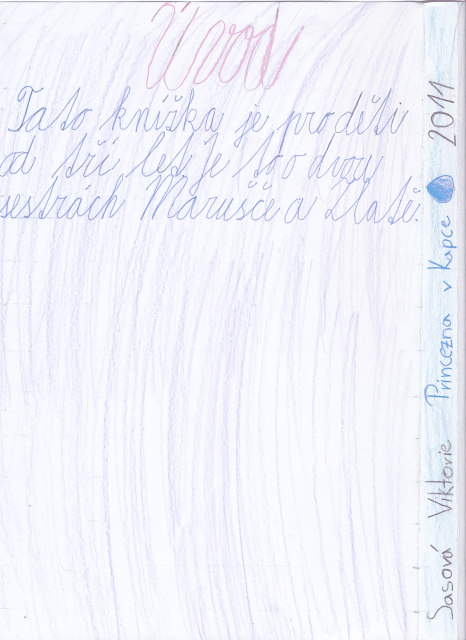 Úvod
Tato knížka je pro děti
od tří let je to o dvou
sestrách Marušče a Zlatě.
Sasová Viktorie Princezna v Kapce 2011